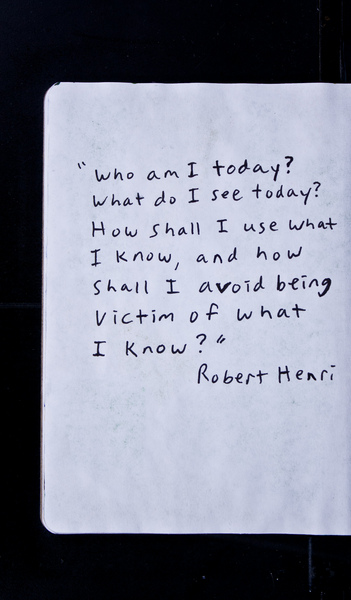 "Who am I today?
What do I see today?
How shall I use what
I know, and how
shall I avoid being
victim of what
I know?"
Robert Henri